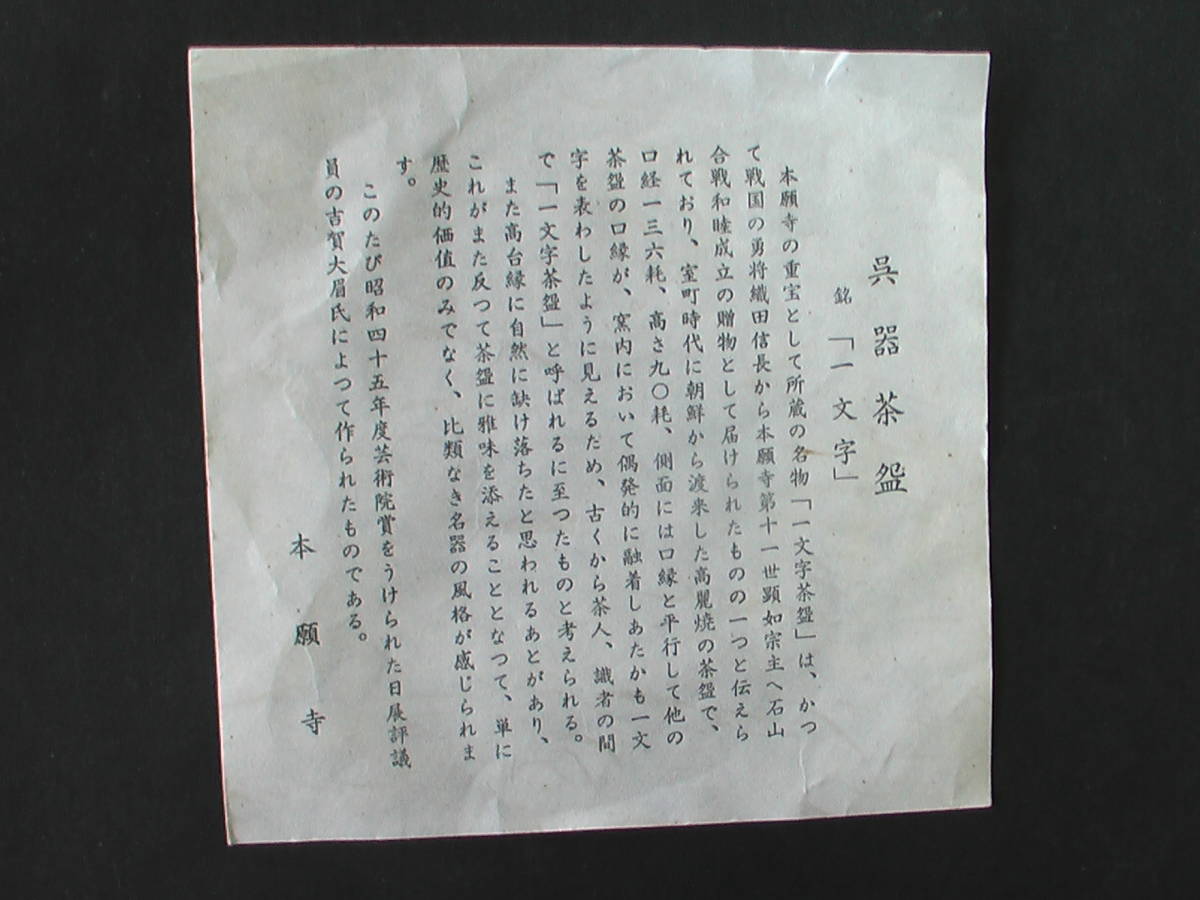 呉器茶盌
銘「一文字」
本願寺の重宝として所蔵の名物「一文字茶盌」は、かつ
て戦国の勇将織田信長から本願寺第十一世顕如宗主へ石山
合戦和睦成立の贈物として届けられたものの一つと伝えら
れており、室町時代に朝鮮から渡来した高麗焼の茶盌で、
口経一三六粍、高さ九〇粍、側面には口縁と平行して他の
茶盌の口縁が、窯内において偶発的に融着しあたかも一文
字を表わしたように見えるため、古くから茶人、識者の間
で「一文字茶盌」と呼ばれるに至つたものと考えられる。
また高台縁に自然に缺け落ちたと思われるあとがあり、
これがまた反つて茶盌に雅味を添えることとなつて、単に
歴史的価値のみでなく、比類なき名器の風格が感じられま
す。
このたび昭和四十五年度芸術院賞をうけられた日展評議
員の古賀大眉氏によつて作られたものである。
本願寺